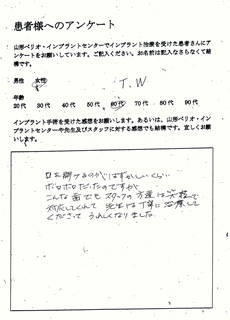 患者様へのアンケート
山形ペリオ・インプラントセンターでインプラント治療を受けた患者さんにア
ンケートをお願いしています。ご記入ください。お名前は記入なさらなくて結
構です。
男性 女性 T.W
年齢
20代 30代 40代 50代 60代 70代 80代 90代
インプラント手術を受けた感想をお願いします。あるいは、山形ペリオ・イン
プラントセンターや先生及びスタッフに対する感想でも結構です。宜しくお願
いします。
口を開けるのがはずかしいくらい
ボロボロだったのですが
こんな歯でもスタッフの方達は笑顔で
対応してくれて 先生は丁寧に治療して
くださって うれしくなりました。